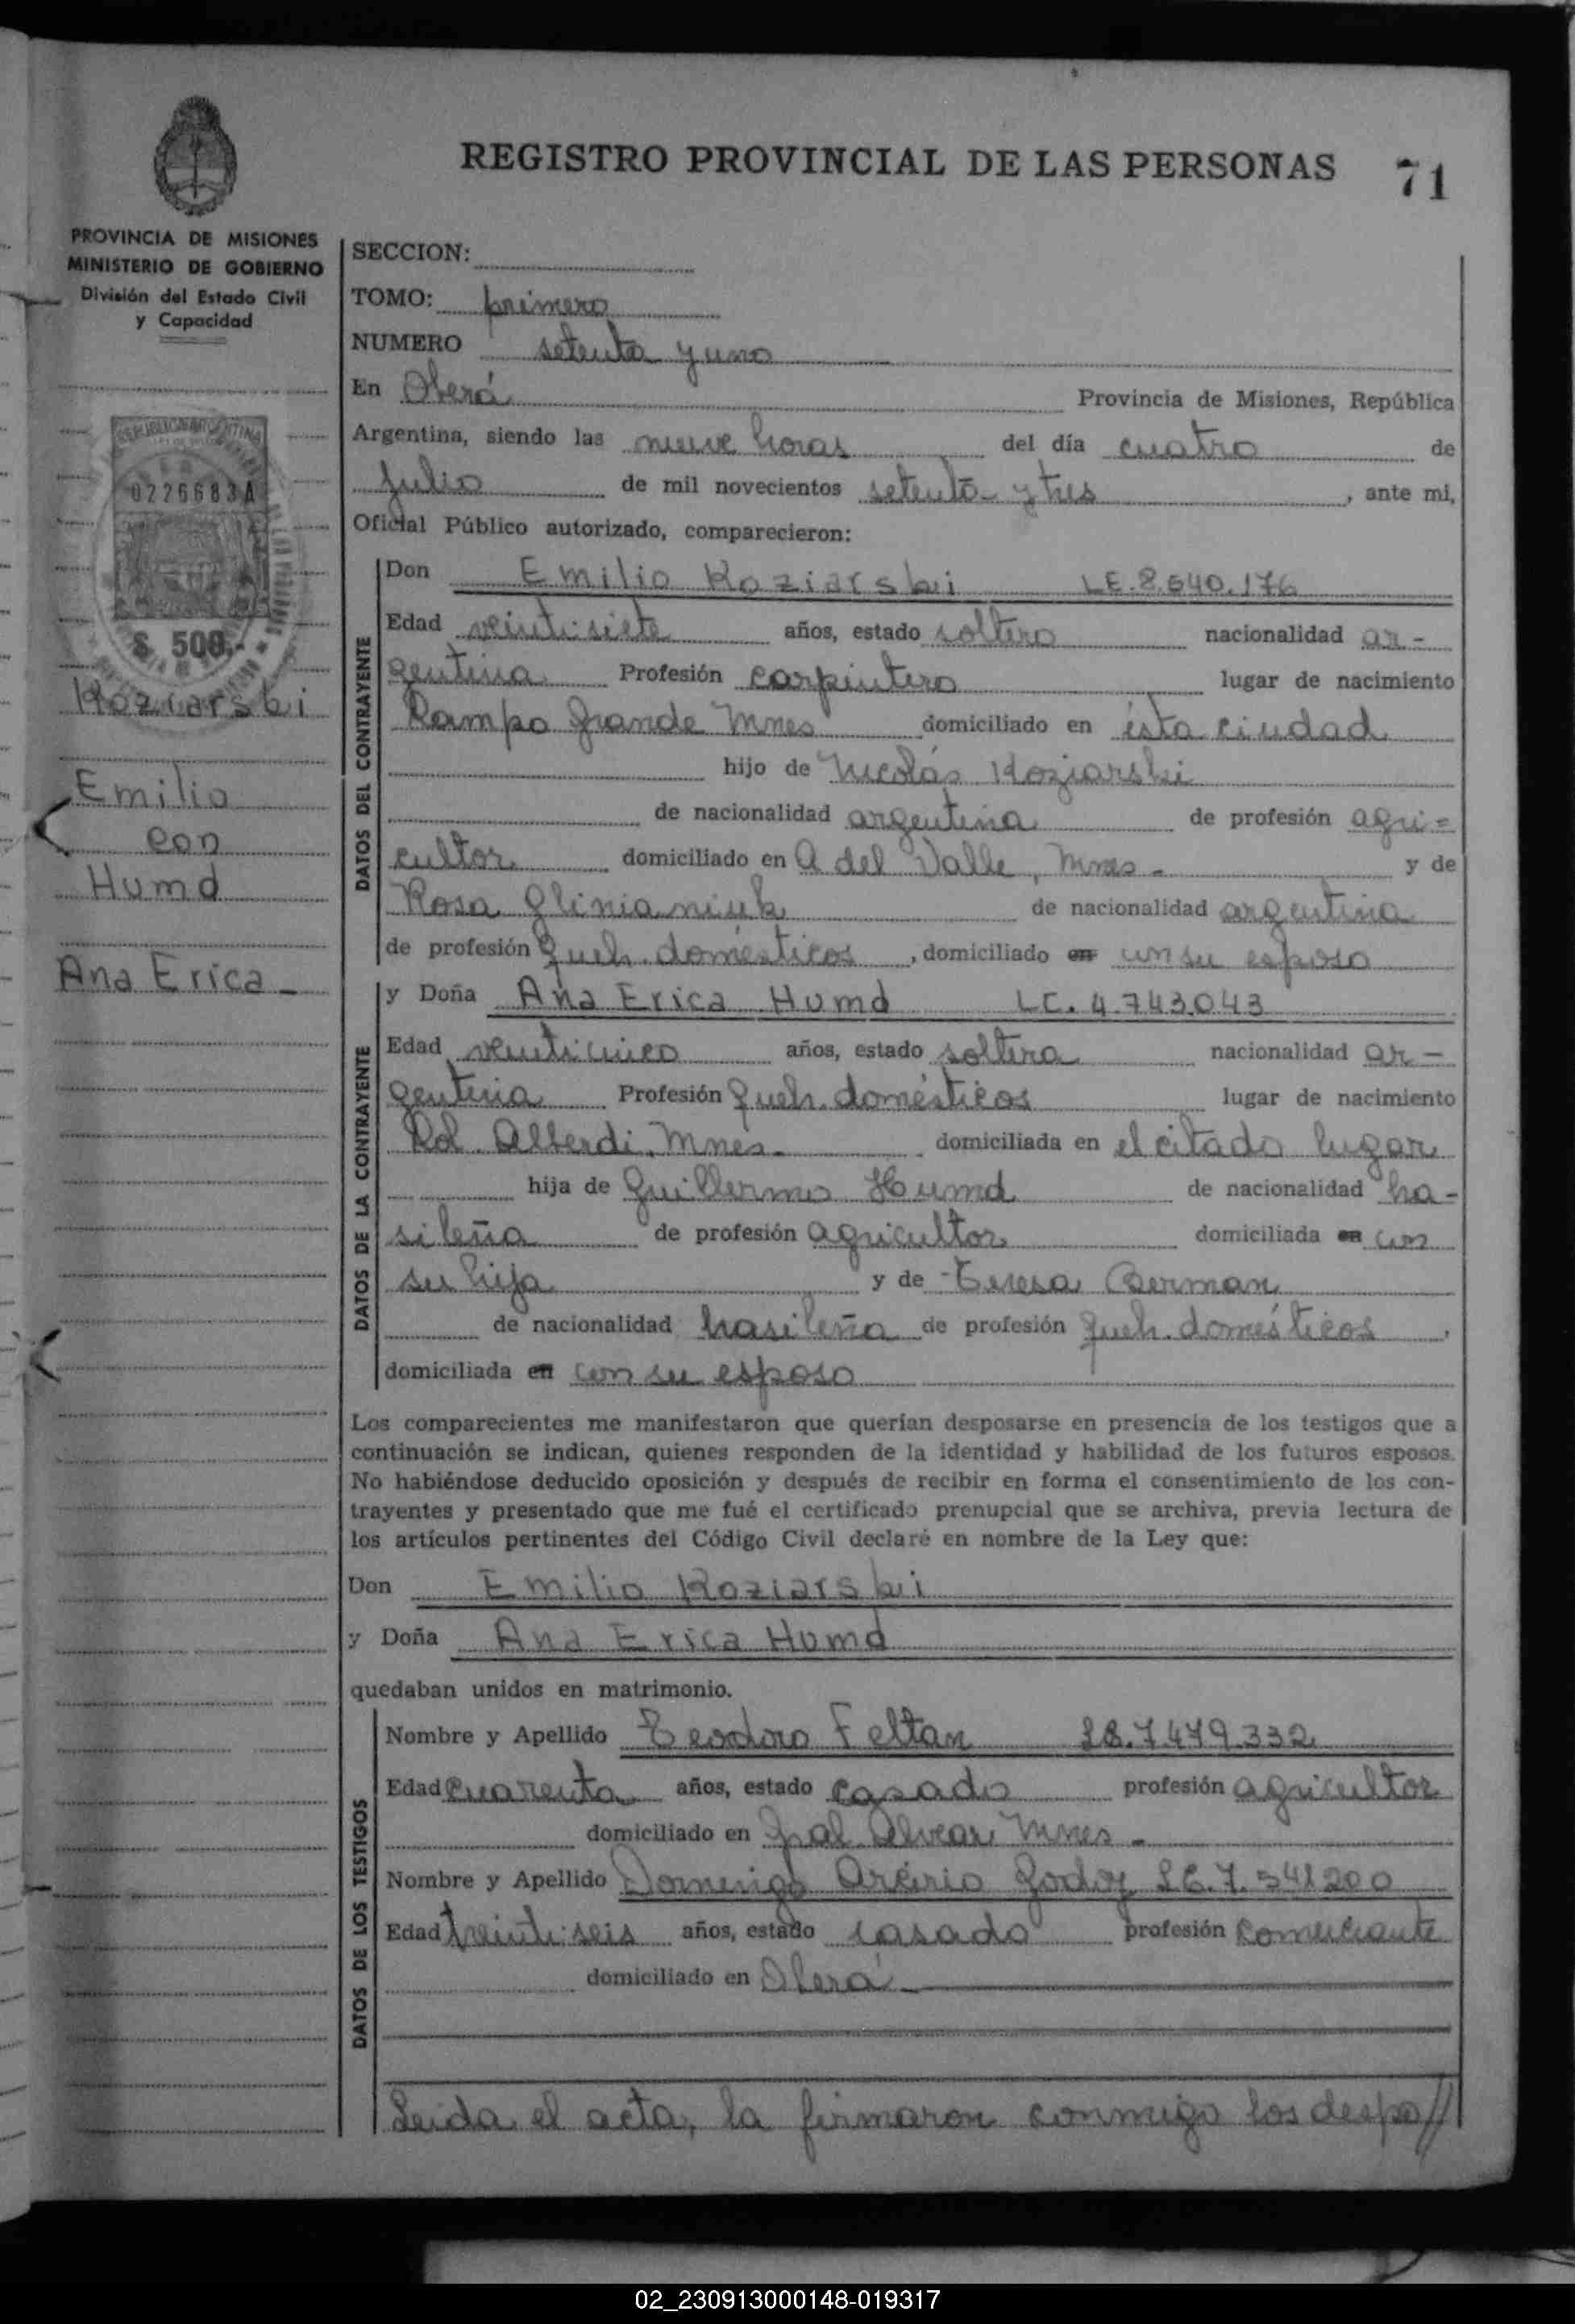 REGISTRO PROVINCIAL DE LAS PERSONAS 71
PROVINCIA DE MISIONES
MINISTERIO DE GOBIERNO
División del Estado Civil
y Capacidad
0226683A
$ 500.-
Koziarski
Emilio
con
Humd
Ana Erica -
SECCION:
TOMO: primero
NUMERO setenta y uno
En Oberá Provincia de Misiones, República
Argentina, siendo las nueve horas del día cuatro de
Julio de mil novecientos setenta y tres, ante mi,
Oficial Público autorizado, comparecieron:
DATOS DEL CONTRAYENTE
Don Emilio Koziarski LE.8.540.176
Edad veintisiete años, estado soltero nacionalidad ar-
gentina Profesión carpintero lugar de nacimiento
Kampo Grande Mnes domiciliado en ésta ciudad
hijo de Nicolás Koziarski
de nacionalidad argentina de profesión agri=
cultor domiciliado en A del Valle, Mnes - y de
Rosa Glinianiuk de nacionalidad argentina
de profesión Queh. domésticos, domiciliado en con su esposo
DATOS DE LA CONTRAYENTE
y Doña Ana Erica Humd LC. 4.743.043
Edad veinticinco años, estado soltera nacionalidad ar-
gentina Profesión Queh. domésticos lugar de nacimiento
Kol. Alberdi, Mnes. domiciliada en el citado lugar
hija de Guillermo Humd de nacionalidad bra-
sileña de profesión agricultor domiciliada en con
su hija y de Teresa Berman
de nacionalidad brasileña de profesión Queh. domésticos,
domiciliada en con su esposo
Los comparecientes me manifestaron que querían desposarse en presencia de los testigos que a
continuación se indican, quienes responden de la identidad y habilidad de los futuros esposos.
No habiéndose deducido oposición y después de recibir en forma el consentimiento de los con-
trayentes y presentado que me fué el certificado prenupcial que se archiva, previa lectura de
los artículos pertinentes del Código Civil declaré en nombre de la Ley que:
Don Emilio Koziarski
y Doña Ana Erica Humd
quedaban unidos en matrimonio.
DATOS DE LOS TESTIGOS
Nombre y Apellido Teodoro Feltan LE.7.479.332
Edad cuarenta años, estado casado profesión agricultor
domiciliado en Gral Alvear Mnes -
Nombre y Apellido Domingo Godoy LE.7.541200
Edad treintiseis años, estado casado profesión comerciante
domiciliado en Oberá
Leida el acta, la firmaron conmigo los despo//
02_230913000148-019317